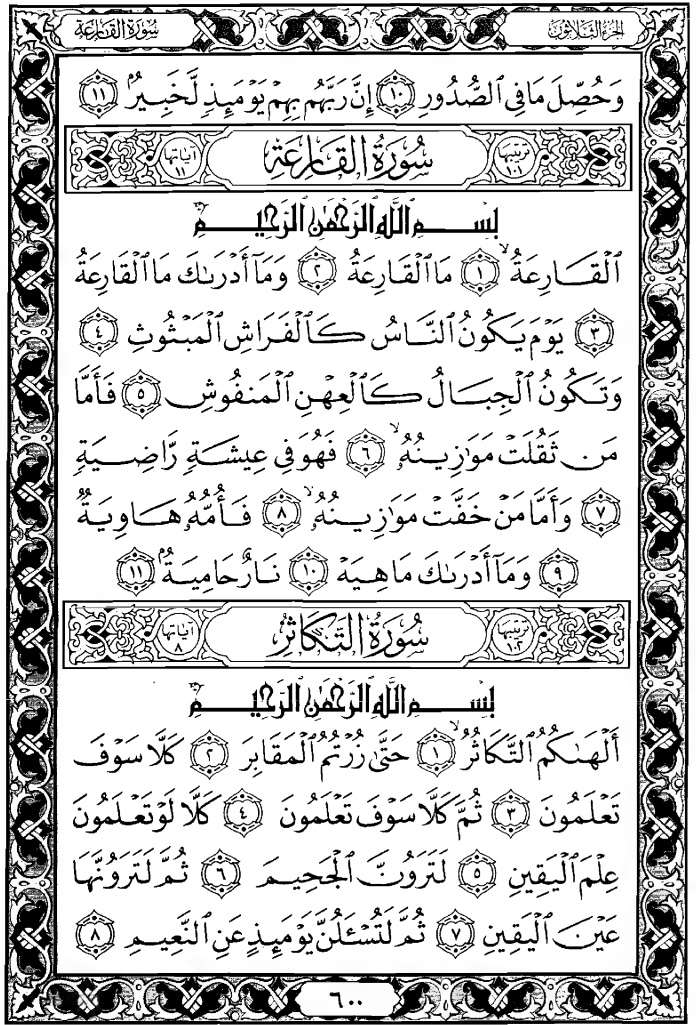 الجزء الثلاثون
سورة القارعة
وَحُصِّلَ مَا فِي ٱلصُّدُورِ ١٠ إِنَّ رَبَّهُم بِهِمْ يَوْمَئِذٍ لَّخَبِيرٌۢ ١١
ترتيبها ١٠١
سُورَةُ القَارِعَةِ
آياتها ١١
بِسْمِ ٱللَّهِ ٱلرَّحْمَٰنِ ٱلرَّحِيمِ
ٱلْقَارِعَةُ ۙ ١ مَا ٱلْقَارِعَةُ ٢ وَمَآ أَدْرَىٰكَ مَا ٱلْقَارِعَةُ
٣ يَوْمَ يَكُونُ ٱلنَّاسُ كَٱلْفَرَاشِ ٱلْمَبْثُوثِ ٤
وَتَكُونُ ٱلْجِبَالُ كَٱلْعِهْنِ ٱلْمَنفُوشِ ٥ فَأَمَّا
مَن ثَقُلَتْ مَوَٰزِينُهُۥ ۙ ٦ فَهُوَ فِي عِيشَةٍ رَّاضِيَةٍ
٧ وَأَمَّا مَنْ خَفَّتْ مَوَٰزِينُهُۥ ۙ ٨ فَأُمُّهُۥ هَاوِيَةٌ
٩ وَمَآ أَدْرَىٰكَ مَا هِيَهْ ١٠ نَارٌ حَامِيَةٌۢ ١١
ترتيبها ١٠٢
سُورَةُ التَّكَاثُرِ
آياتها ٨
بِسْمِ ٱللَّهِ ٱلرَّحْمَٰنِ ٱلرَّحِيمِ
أَلْهَىٰكُمُ ٱلتَّكَاثُرُ ۙ ١ حَتَّىٰ زُرْتُمُ ٱلْمَقَابِرَ ٢ كَلَّا سَوْفَ
تَعْلَمُونَ ٣ ثُمَّ كَلَّا سَوْفَ تَعْلَمُونَ ٤ كَلَّا لَوْ تَعْلَمُونَ
عِلْمَ ٱلْيَقِينِ ٥ لَتَرَوُنَّ ٱلْجَحِيمَ ٦ ثُمَّ لَتَرَوُنَّهَا
عَيْنَ ٱلْيَقِينِ ٧ ثُمَّ لَتُسْـَٔلُنَّ يَوْمَئِذٍ عَنِ ٱلنَّعِيمِ ٨
٦٠٠